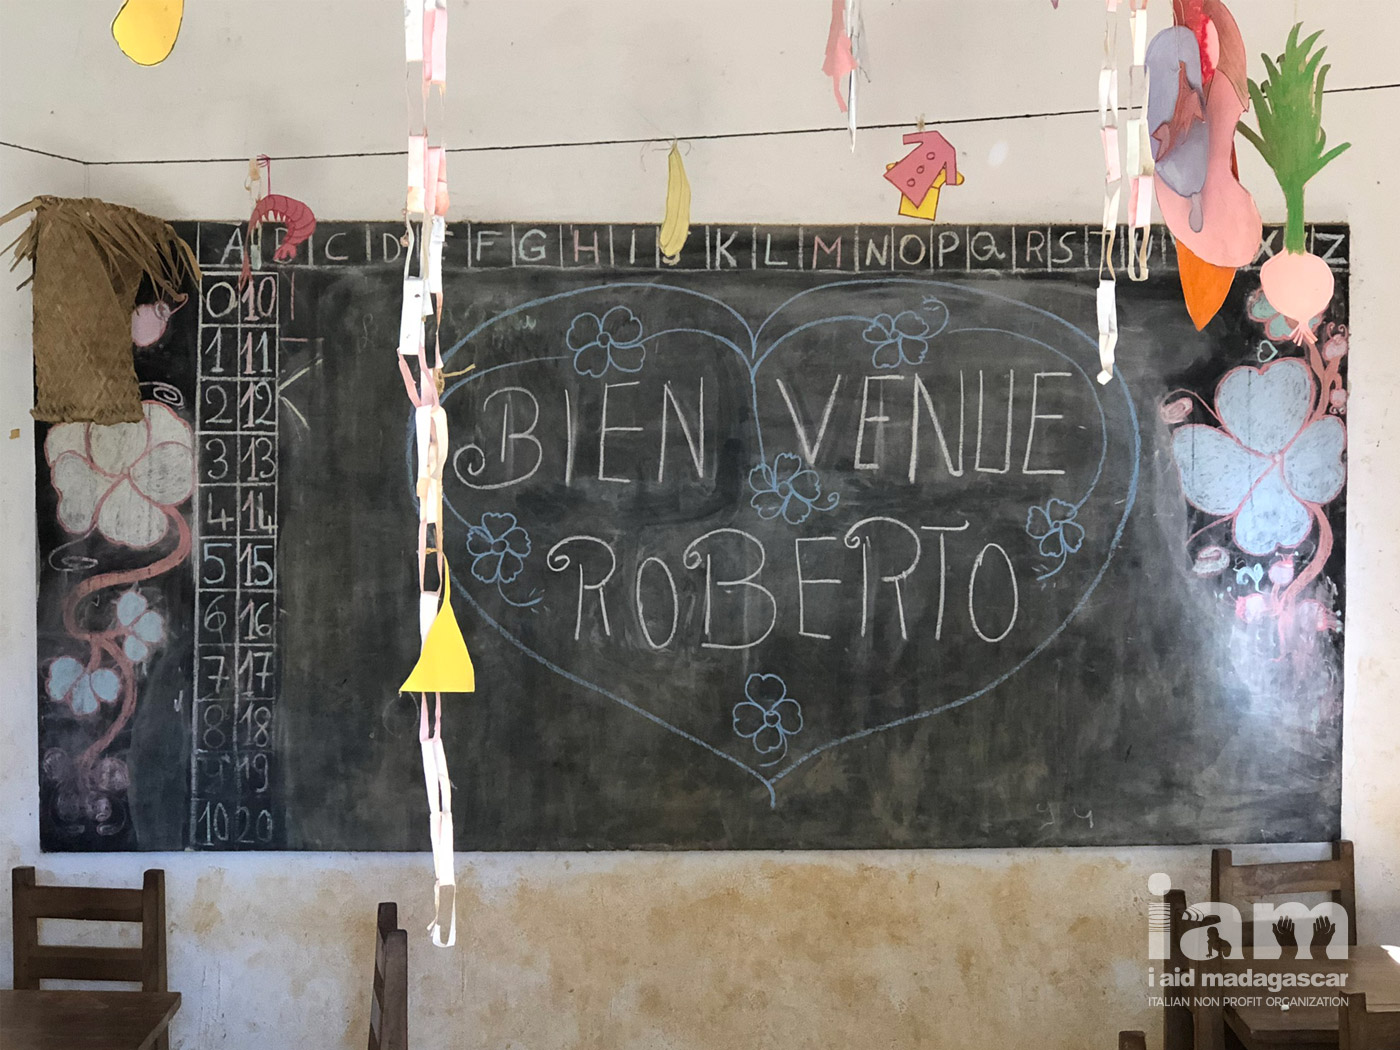 A B C D F G H I K L M N O P Q R S T U X Z
0 10
1 11
2 12
3 13
4 14
5 15
6 16
7 17
8 18
9 19
10 20
BIEN VENUE
ROBERTO
iam
i aid madagascar
ITALIAN NON PROFIT ORGANIZATION